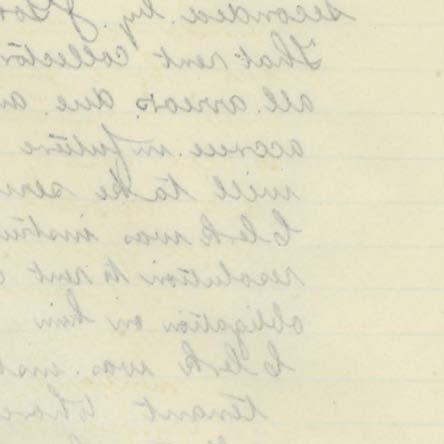 seconded by
That rent collector
all arrears due
accrue in future
will take
Clerk was
resolution to rent
obligation on him
Clerk was
tenant